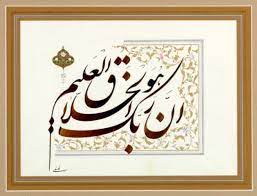 ان ربک هو الخلاق العلیم